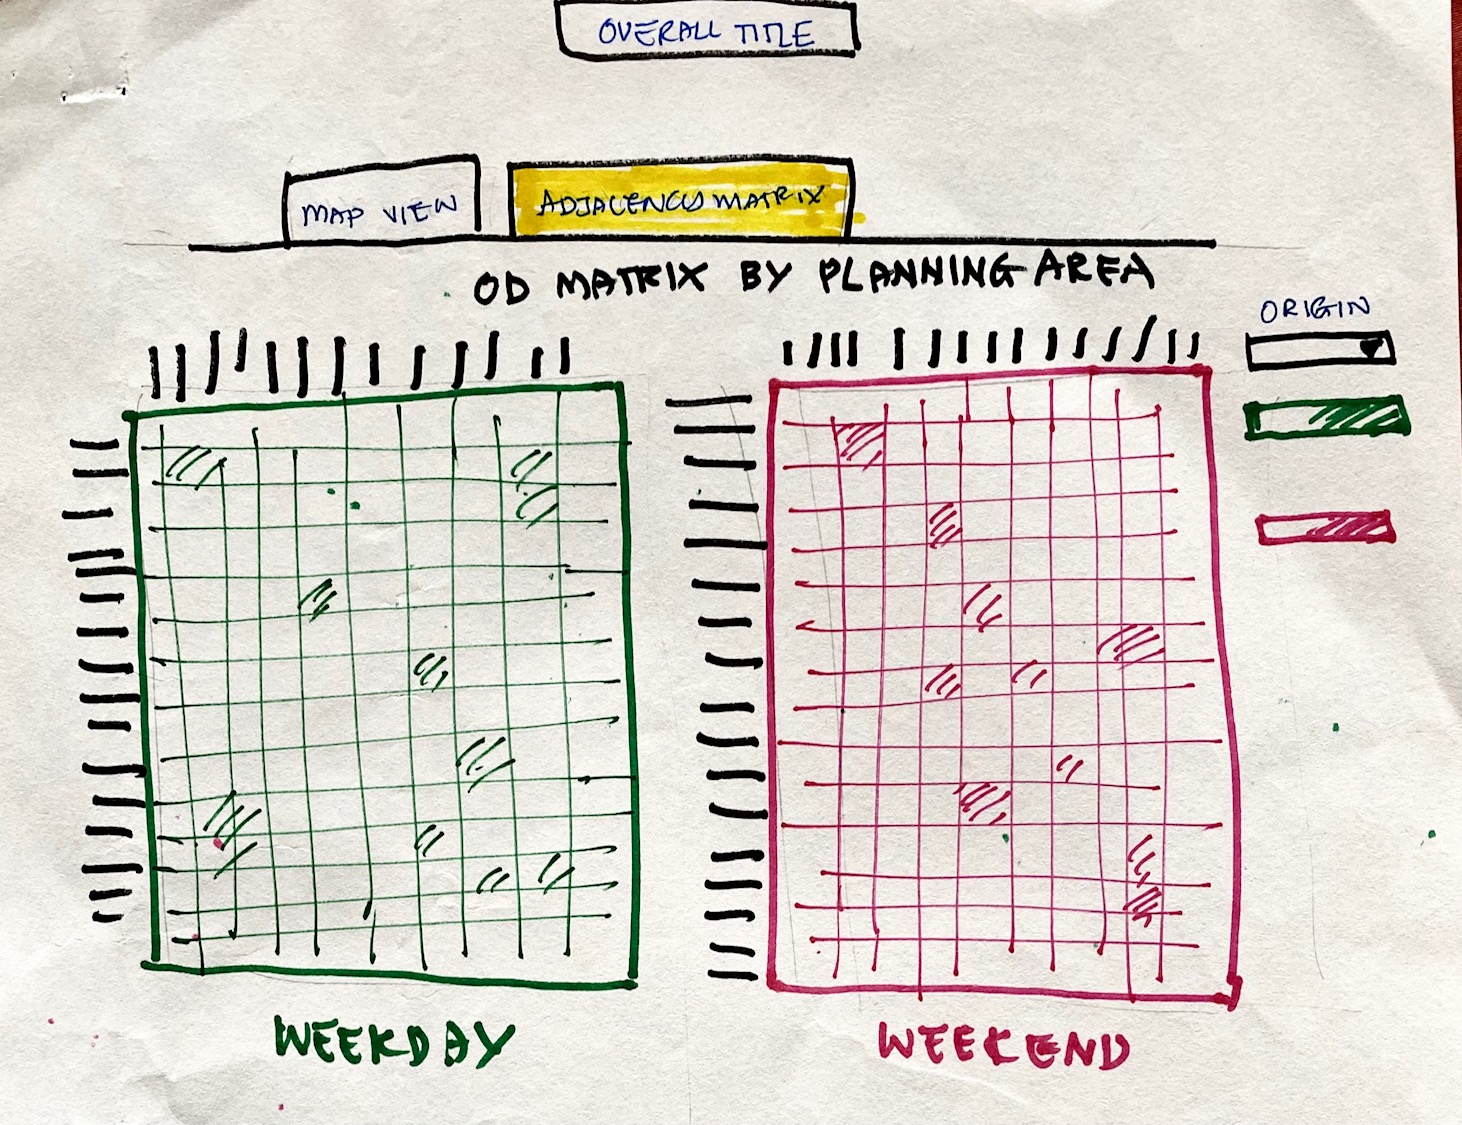 OVERALL TITLE
MAP VIEW
ADJACENCY MATRIX
OD MATRIX BY PLANNING AREA
ORIGIN
WEEKDAY
WEEKEND